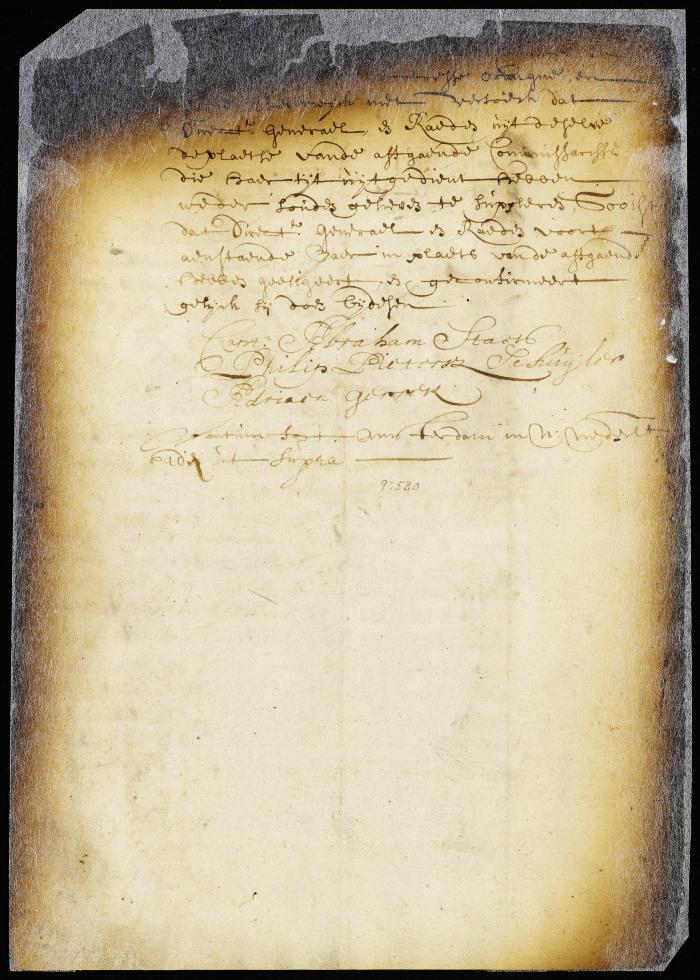 Orangne, en
met versoeck dat
Direct:r Generael, en Raeden uijt deselve
de plaetse vande affgaende Commissarissen
die haer tijt uijtgedient hebben
weder souden gelieven te suppleren, Soo ist
dat Direct:r Generael en Raeden voort
aenstaende Jaer in plaets van de affgaende
hebben geeligeert, en geconfirmeert
gelijck sij doen bij desen
Capt:n Abraham Staets
Philip Pietersz Schuijler
Adriaen gerritsz
Datum fort Amsterdam in N: Nederl:t
ut supra
9:580